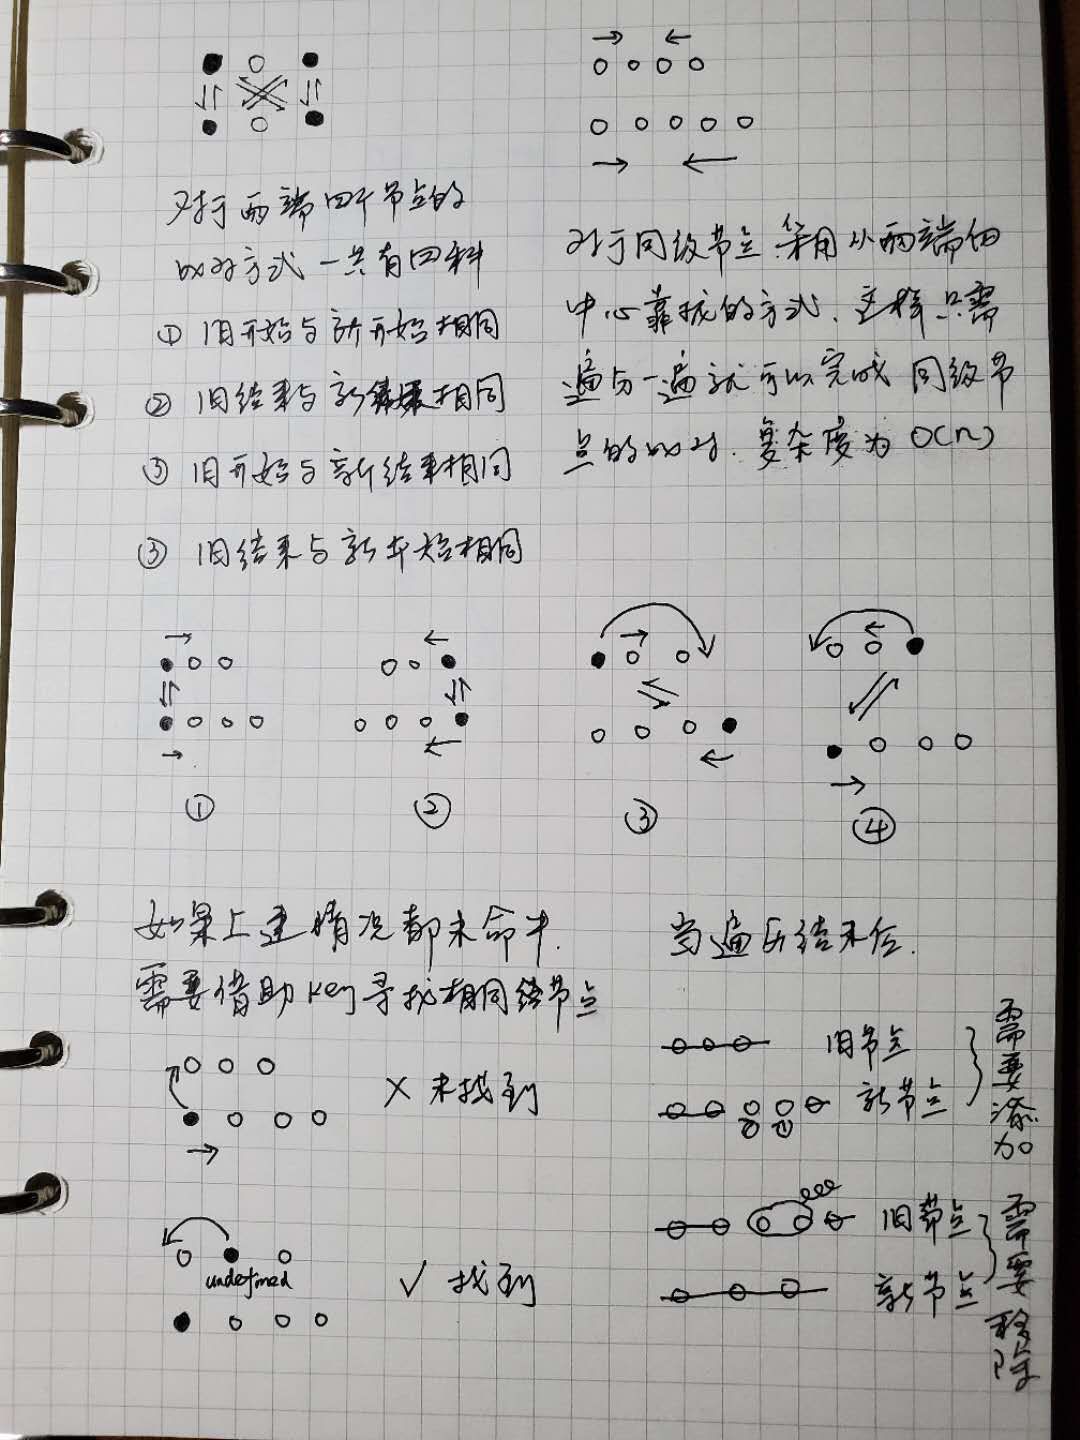 对于两端四个节点的
比对方式一共有四种
① 旧开始与新开始相同
② 旧结束与新结束相同
③ 旧开始与新结束相同
③ 旧结束与新开始相同
对于同级节点采用从两端向
中心靠拢的方式.这样只需
遍历一遍就可以完成同级节
点的比对.复杂度为O(n)
①
②
③
④
如果上述情况都未命中.
需要借助key寻找相同结节点
× 未找到
undefined
✓ 找到
当遍历结束后.
旧节点
新节点
② ①
需要添加
旧节点
新节点
需要移除